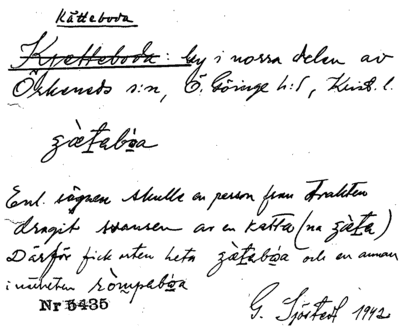 Kätteboda
Kjetteboda: by i norra delen av
Örkeneds s:n, Ö. Göinge h:d, Krist. l.
Enl. sägnen skulle en person från trakten
dragit svansen av en katta (na
Därför fick orten heta och en annan
i närheten
Nr 5435
G. Sjöstedt 1942